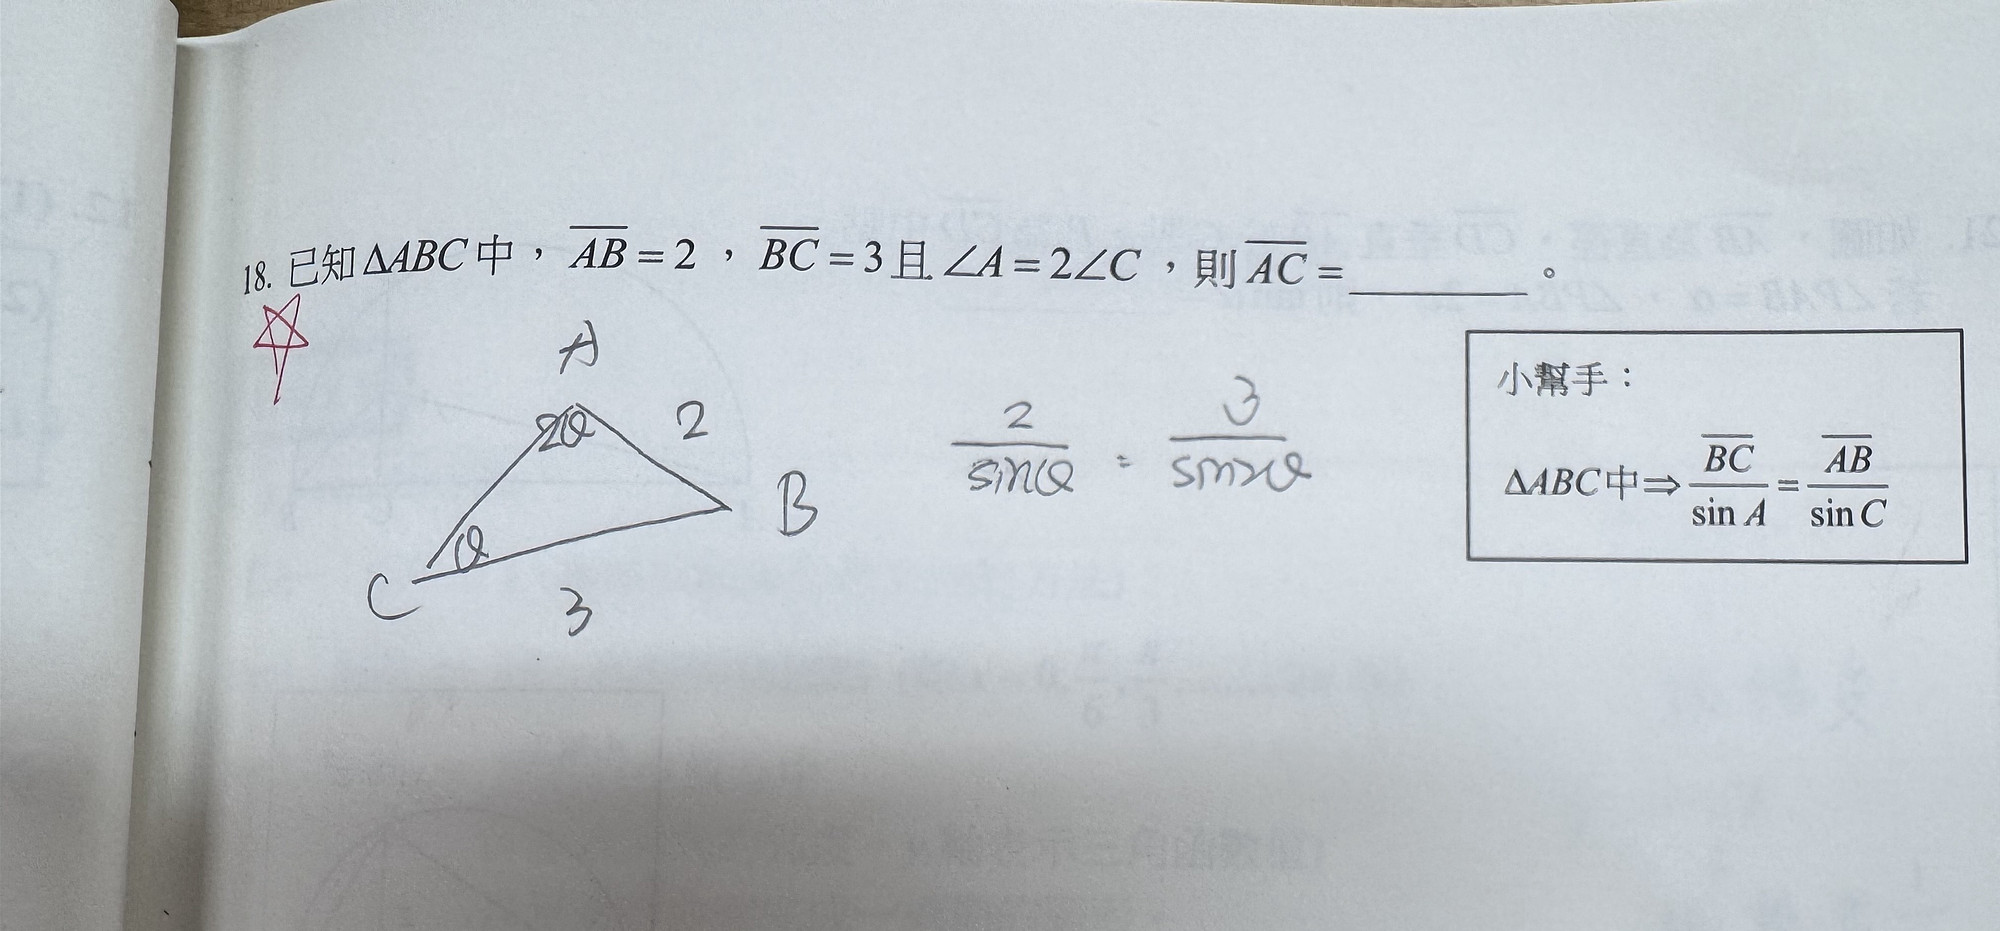 18. 已知 ΔABC 中，AB = 2，BC = 3 且 ∠A = 2∠C，則 AC = ________。
A
2θ
2
B
θ
C
3
2/sinθ = 3/sin2θ
小幫手：
ΔABC 中 ⇒ BC/sin A = AB/sin C